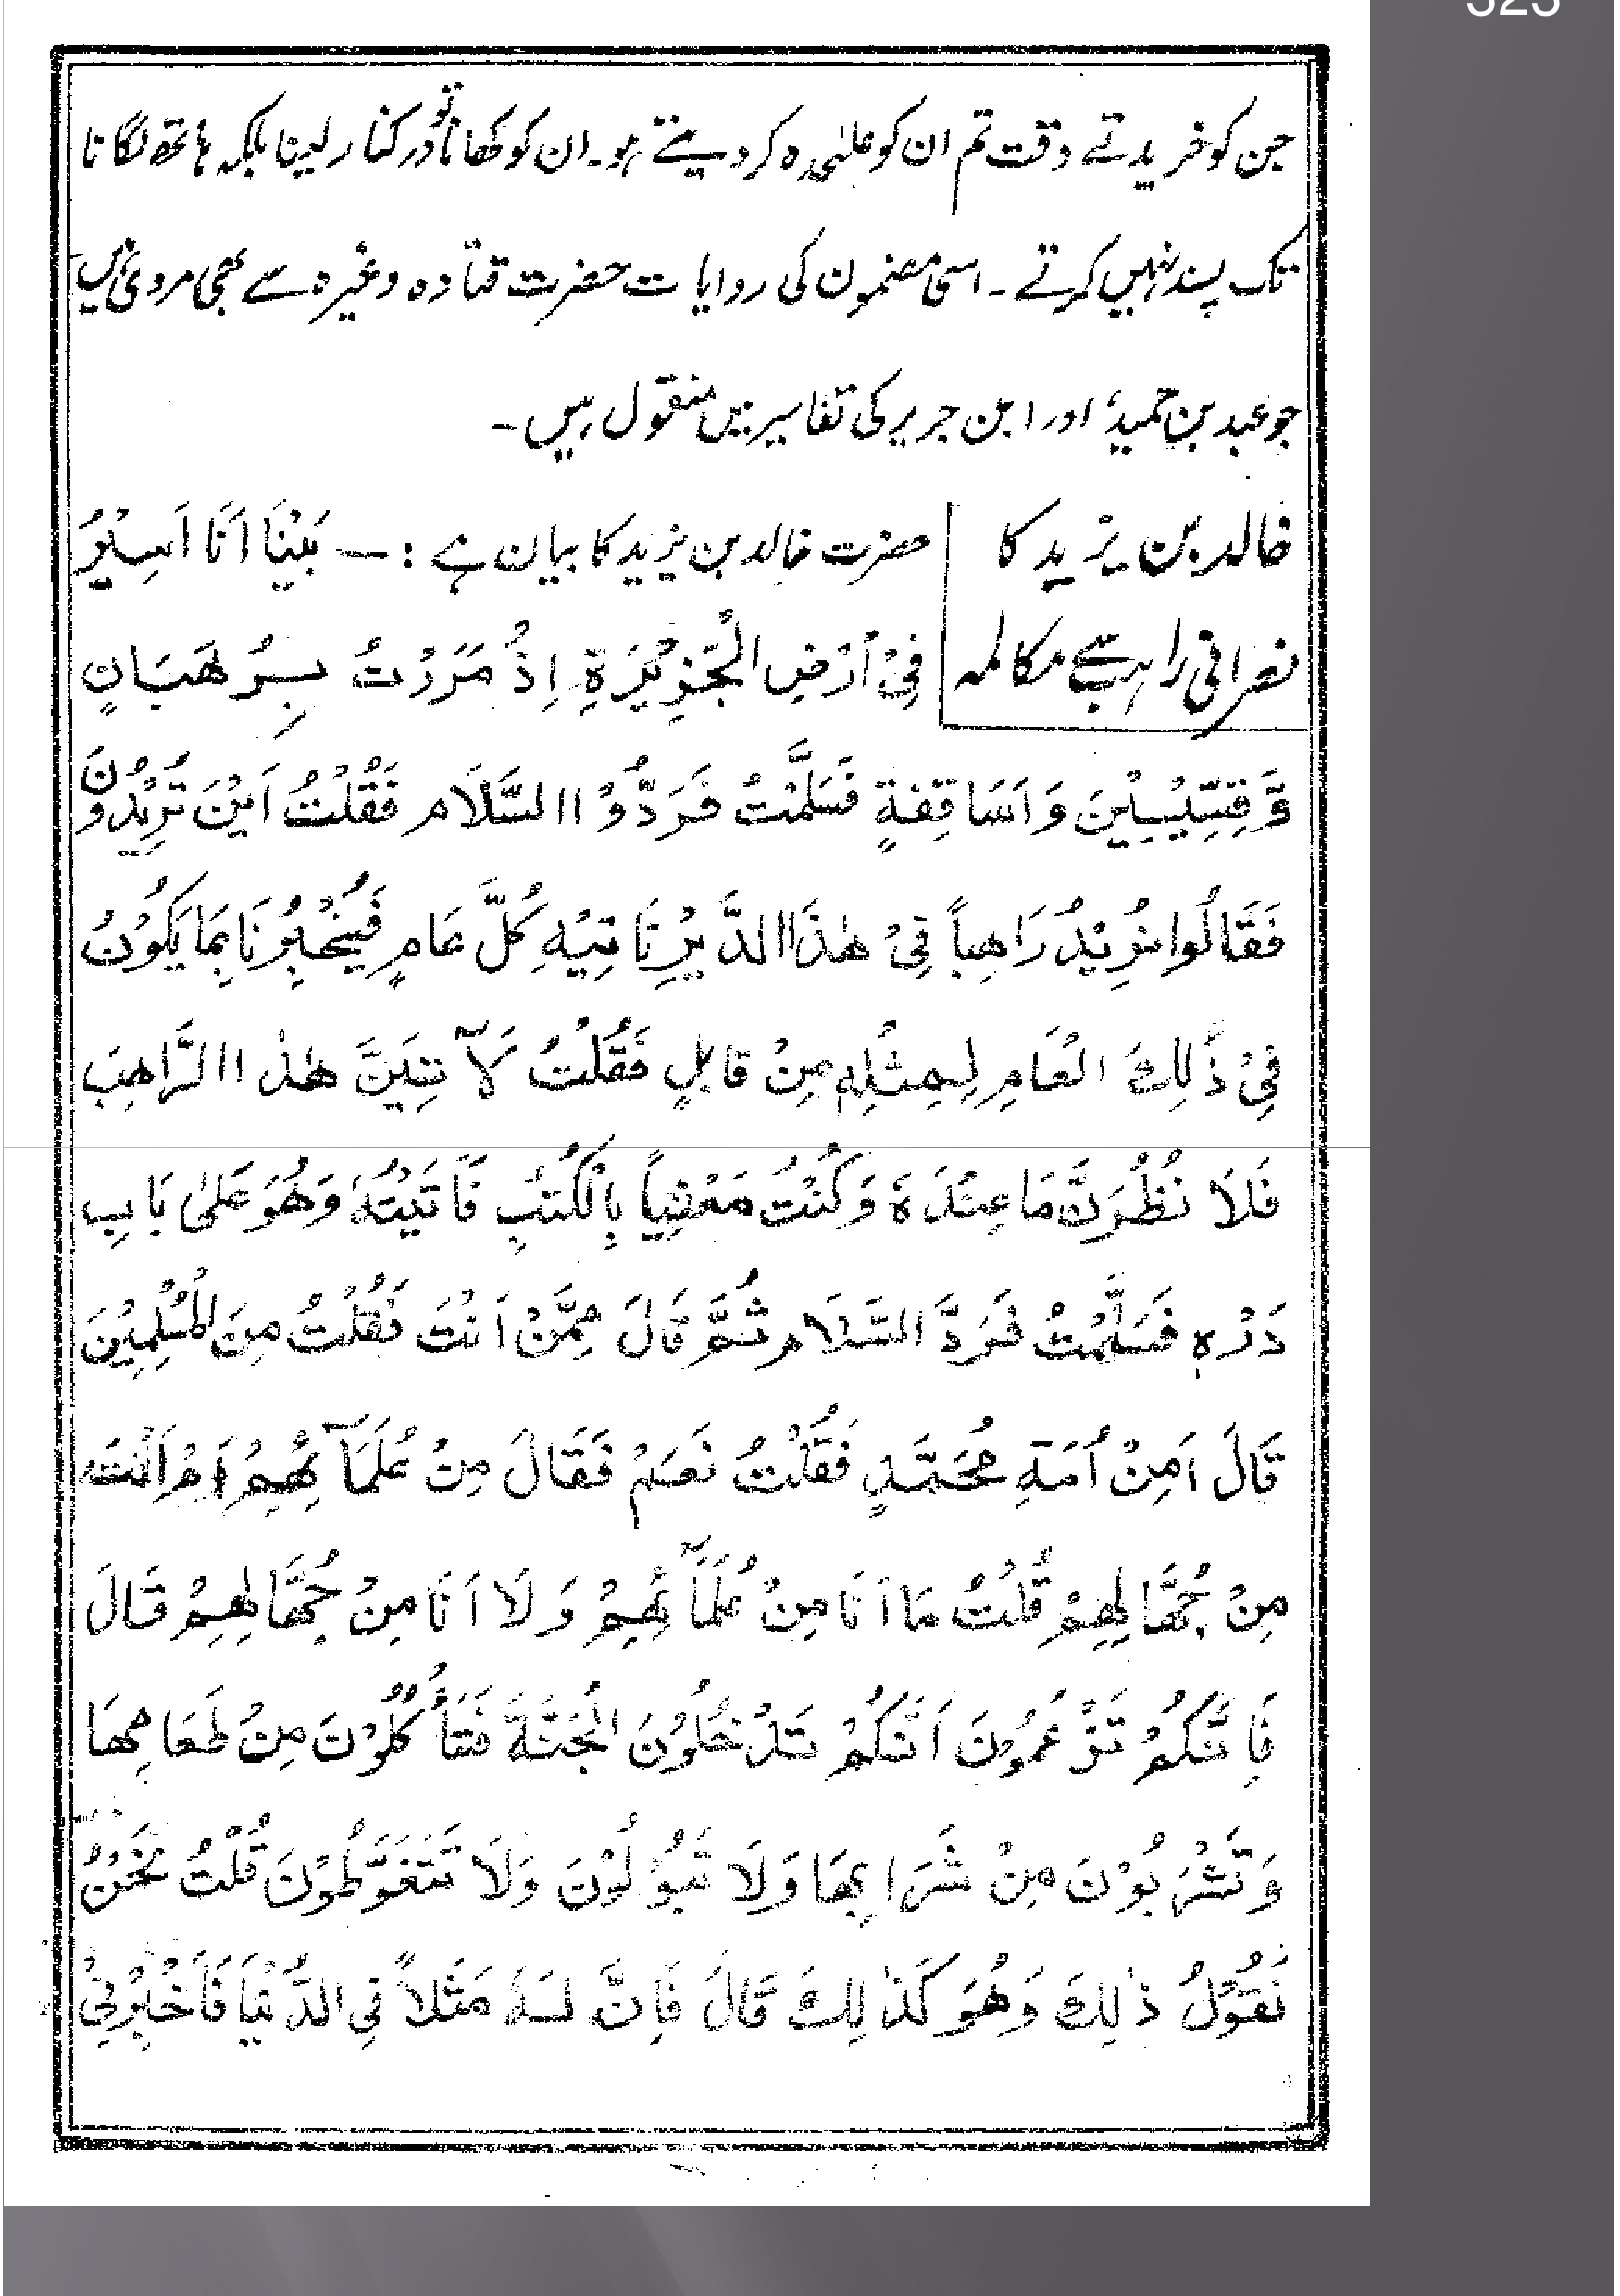 جن کو خریدتے وقت تم ان کو علیٰحدہ کر دیتے ہو۔ ان کو کھانا تو درکنار لینا بلکہ ہاتھ لگانا
تک پسند نہیں کرتے۔ اسی مضمون کی روایات حضرت قتادہ وغیرہ سے بھی مروی ہیں
جو عبد بن حمید، اور ابن جریر کی تفاسیر میں منقول ہیں۔
خالد بن یزید کا
نصرانی راہب سے مکالمہ
حضرت خالد بن یزید کا بیان ہے :— بَيْنَا اَنَا اَسِيْرُ
فِيْ اَرْضِ الْجَزِيْرَةِ اِذْ مَرَرْتُ بِرُهْبَانٍ
وَّ قِسِّيْسِيْنَ وَ اَسَاقِفَةٍ فَسَلَّمْتُ فَرَدُّوْا السَّلَام فَقُلْتُ اَيْنَ تُرِيْدُوْنَ
فَقَالُوا نُرِيْدُ رَاهِباً فِيْ هٰذَا الدَّيْرِ نَاتِيْهِ كُلَّ عَامٍ فَيُخْبِرُنَا بِمَا يَكُوْنُ
فِيْ ذَلِكَ الْعَامِ لِمِثْلِهِ مِنْ قَابِلٍ فَقُلْتُ لَآتِيَنَّ هٰذا الرَّاهِبَ
فَلَا نْظُرَنَّ مَا عِنْدَهٗ وَ كُنْتُ مَعْنِياً بِالْكُتُبِ فَاَتَيْتُهٗ وَ هُوَ عَلیٰ بَابِ
دَرْهٖ فَسَلَّمْتُ فَرَدَّ السَّلَام ثُمَّ قَالَ مِمَّنْ اَنْتَ فَقُلْتُ مِنَ الْمُسْلِمِيْنَ
قَالَ اَمِنْ اُمَةِ مُحَمَّدٍ فَقُلْتُ نَعَمْ فَقَالَ مِنْ عُلَمَآ ئِهِمْ اَمْ اَنْتَ
مِنْ جُهَّالِهِمْ قُلْتُ مَا اَنَا مِنْ عُلَمَآ ئِهِمْ وَ لَا اَنَا مِنْ جُهَّالِهِمْ قَالَ
فَاِنَّكُمْ تَزْعُمُوْنَ اَنَّكُمْ تَدْخُلُوْنَ الْجَنَّةَ فَتَاْ كُلُوْنَ مِنْ طَعَامِهَا
وَ تَشْرَبُوْنَ مِنْ شَرَابِهَا وَ لَا تَبُوْلُوْنَ وَ لَا تَتَغَوَّطُوْنَ قُلْتُ نَحْنُ
نَقُوْلُ ذٰلِكَ وَ هُوَ كَذٰلِكَ قَالَ فَاِنَّ لَهٗ مَثَلاً فِي الدُّنْيَا فَاَخْبِرْنِيْ